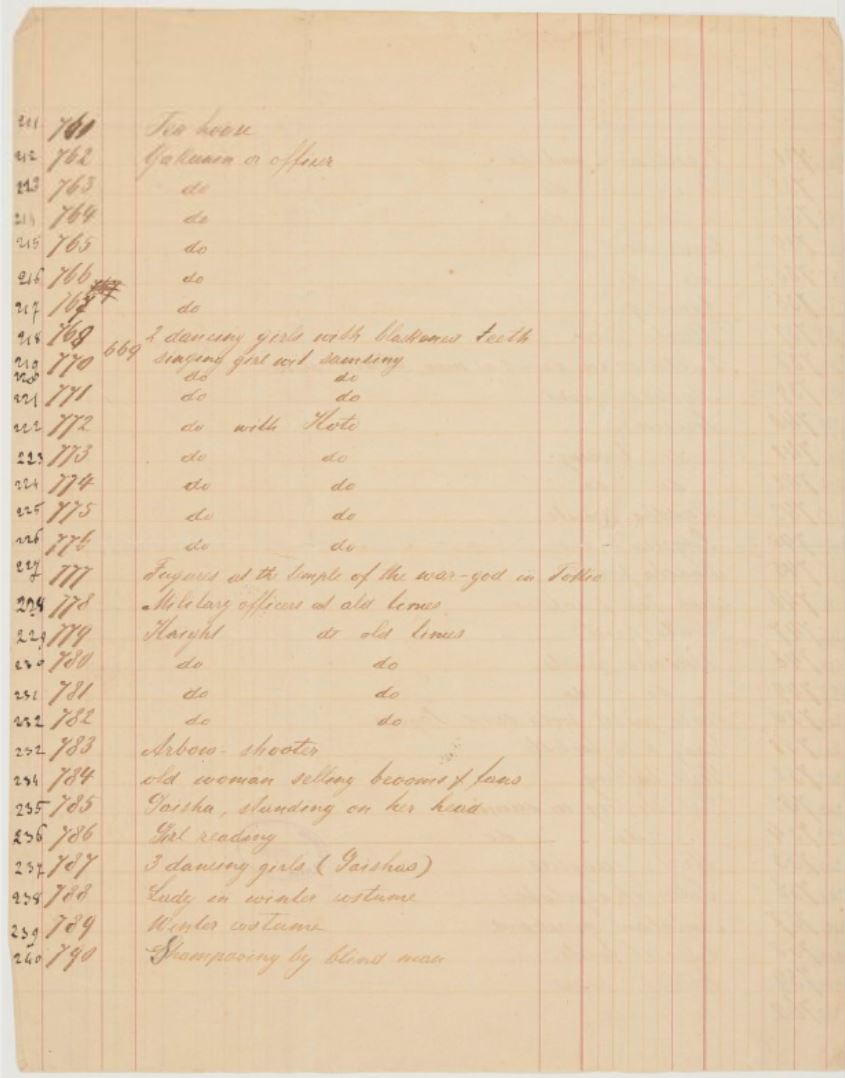 211 761 Tea house
212 762 Yakunin or officer
213 763 do
214 764 do
215 765 do
216 766 do
217 767 do
218 768 2 dancing girls with blackened teeth
219 770 669 singing girl wit samising
220 do do
221 771 do do
222 772 do with Koto
223 773 do do
224 774 do do
225 775 do do
226 776 do do
227 777 Fugures at the temple of the war-god in Tokio
228 778 Military officers at old times
229 779 Knight at old times
230 780 do do
231 781 do do
232 782 do do
232 783 Arbow-shooter
234 784 old woman selling brooms & fans
235 785 Gaisha, standing on her head
236 786 Girl reading
237 787 3 dancing girls (Gaishas)
238 788 Lady in winter costume
239 789 Winter costume
240 790 Shampooing by blind man